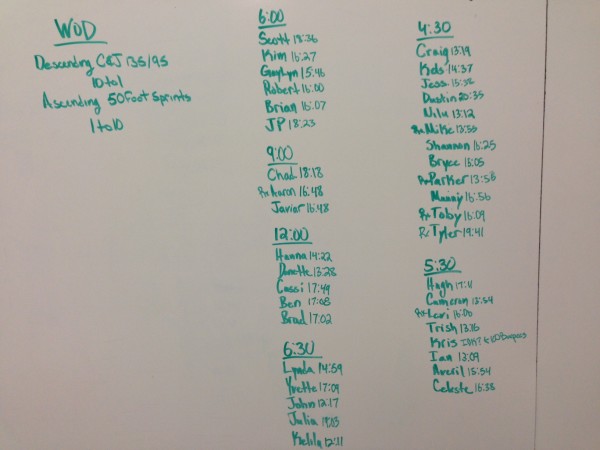 WOD
Descending C&J 135/95
10 to 1
Ascending 50 foot sprints
1 to 10
6:00
Scott 13:36
Kim 16:27
15:46
Robert 16:00
Brian 16:07
JP 18:23
9:00
Chad 18:18
Rx Aaron 16:48
Javier 16:48
12:00
Hanna 14:22
Danette 13:28
Cassi 17:49
Ben 17:08
Brad 17:02
6:30
Lynda 14:59
Yvette 17:09
John 12:17
Julia
12:11
4:30
Craig 13:19
14:37
Jess
Dustin 20:35
13:12
Rx Mike 13:55
Shannon 16:25
Bryce 15:05
Rx Parker 13:58
Manny 16:56
Rx Toby 16:09
Rx Tyler 19:41
5:30
Hugh 17:11
Cameron 15:54
Rx Levi 16:00
Trish 13:16
Kris
Ian 13:09
Averil 15:54
Celeste 16:38